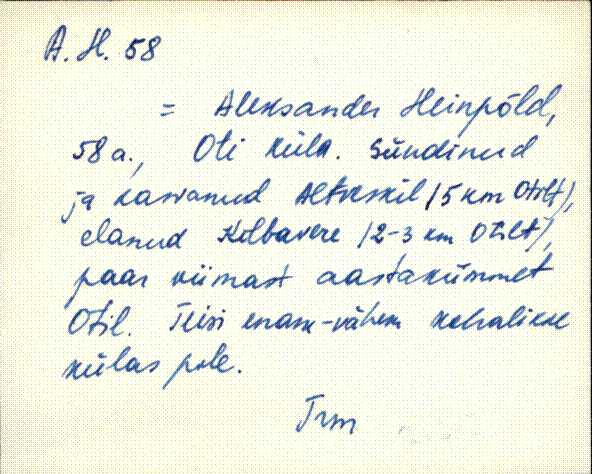 A. H. 58
= Aleksander Heinpõld,
58 a., Oti küla. Sündinud
ja kasvanud Altveskil (5 km Otilt),
elanud Kõlbavere (2-3 km Otilt),
paar viimast aastakümmet
Otil. Teisi enam-vähem kohalikke
külas pole.
Trm